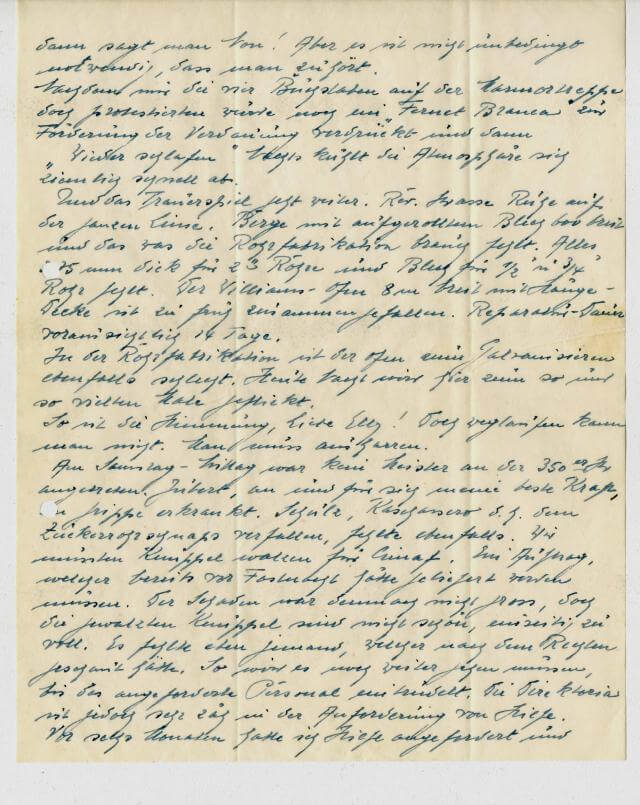 dann sagt man Non! Aber es ist nicht unbedingt
notwendig, dass man zuhört.
Nachdem mir die vier Buchstaben auf der Marmortreppe
doch protestierten würde noch ein "Fernet Branca" zur
Förderung der Verdauung verdrückt und dann
"Wieder schlafen" Nachts kühlt die Atmosphäre sich
ziemlich schnell ab.
Und das Trauerspiel geht weiter. Rev. Strasse Ruhe auf
der ganzen Linie. Berge mit aufgerolltem Blech 600 breit
und das was die Rohrfabrikation braucht fehlt. Alles
75 mm dick für 2" Rohre und Blech für 1/2" u 3/4"
Rohr fehlt. Der Williams-Ofen 8 m breit mit Hänge-
Decke ist zu ganz zusammengefallen. Reparatur-Dauer
voraussichtlich 14 Tage.
In der Rohrfabrikation ist der Ofen zum Galvanisieren
ebenfalls schlecht. Heute Nacht wird hier zum so und
so vielten Male geflickt.
So ist die Stimmung, Liebe Elly! Doch weglaufen kann
man nicht. Man muss ausharren.
Am Samstag-Mittag war kein Meister an der 350er Str
angetreten. an und für sich meine beste Kraft,
an Grippe erkrankt. Schulz, d.h. dem
Zuckerrohrschnaps verfallen, fehlte ebenfalls. Wir
mussten Knüppel walzen für Cimaf. Ein Auftrag,
welcher bereits vor Fastnacht hätte geliefert werden
müssen. Der Schaden war demnach nicht gross, doch
die gewalzten Knüppel sind nicht schön, einseitig zu
voll. Es fehlte eben jemand, welcher nach dem Rechten
geschaut hätte. So wird es noch weiter gehen müssen,
bis das angeforderte Personal eintrudelt. Die Direktoria
ist jedoch sehr zäh in der Anforderung von Hilfe.
Vor sechs Monaten hatte ich Hilfe angefordert und